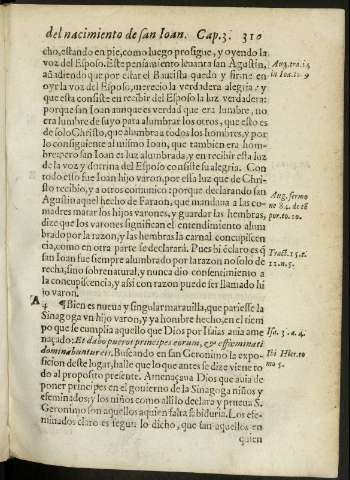 del nacimiento de san Ioan. Cap. 3. 310
cho, estando en pie, como luego prosigue, y oyendo la
voz del Esposo. Este pensamiento leuanta san Agustin,
añadiendo que por estar el Bautista quedo y firme en
oyr la voz del Esposo, merecio la verdadera alegria: y
que esta consiste en recibir del Esposo la luz verdadera:
porque san Ioan aunque es verdad que era lumbre, no
era lumbre de suyo para alumbrar los otros, que esto es
de solo Christo, que alumbra a todos los hombres, y por
lo consiguiente al mismo Ioan, que tambien era hom-
bre: pero san Ioan es luz alumbrada, y en recibir esta luz
de la voz y dotrina del Esposo consiste su alegria. Con
todo esso fue Ioan hijo varon, por essa luz que de Chri-
sto recibio, y a otros comunico: porque declarando san
Agustin aquel hecho de Faraon, que mandaua a las co-
madres matar los hijos varones, y guardar las hembras,
dize que los varones significan el entendimiento alum
brado por la razon, y las hembras la carnal concupiscen
cia, como en otra parte se declarará. Pues bi&#7869; claro es q̃
san Ioan fue siempre alumbrado por la razon no solo de
recha, sino sobrenatural, y nunca dio consentimiento a
la concupiscencia, y assi con razon puede ser llamado hi
jo varon.
A 4 ¶ Bien es nueua y singular marauilla, que pariesse la
Sinagoga vn hijo varon, y ya hombre hecho, en el tiem
po que se cumplia aquello que Dios por Isaias auia ame
naçado: Et dabo pueros principes eorum, & effœminati
dominabuntur eis. Buscando en san Geronimo la expo-
sicion deste lugar, halle lo que antes se dize viene to
do al proposito presente. Amenaçaua Dios que auia de
poner principes en el gouierno de la Sinagoga niños y
efeminados: y los niños como alli lo declara y prueua S.
Geronimo son aquellos a quien falta sabiduria. Los efe-
minados claro es segun lo dicho, que san aquellos en
quien
Aug. tra. 14
in Ioa. to. 9
Aug. sermo
ne 84. de tẽ
por. to. 10.
Tract. 15. t.
Isa. 3. a. 4.
Ibi Hier. to
mo 5.